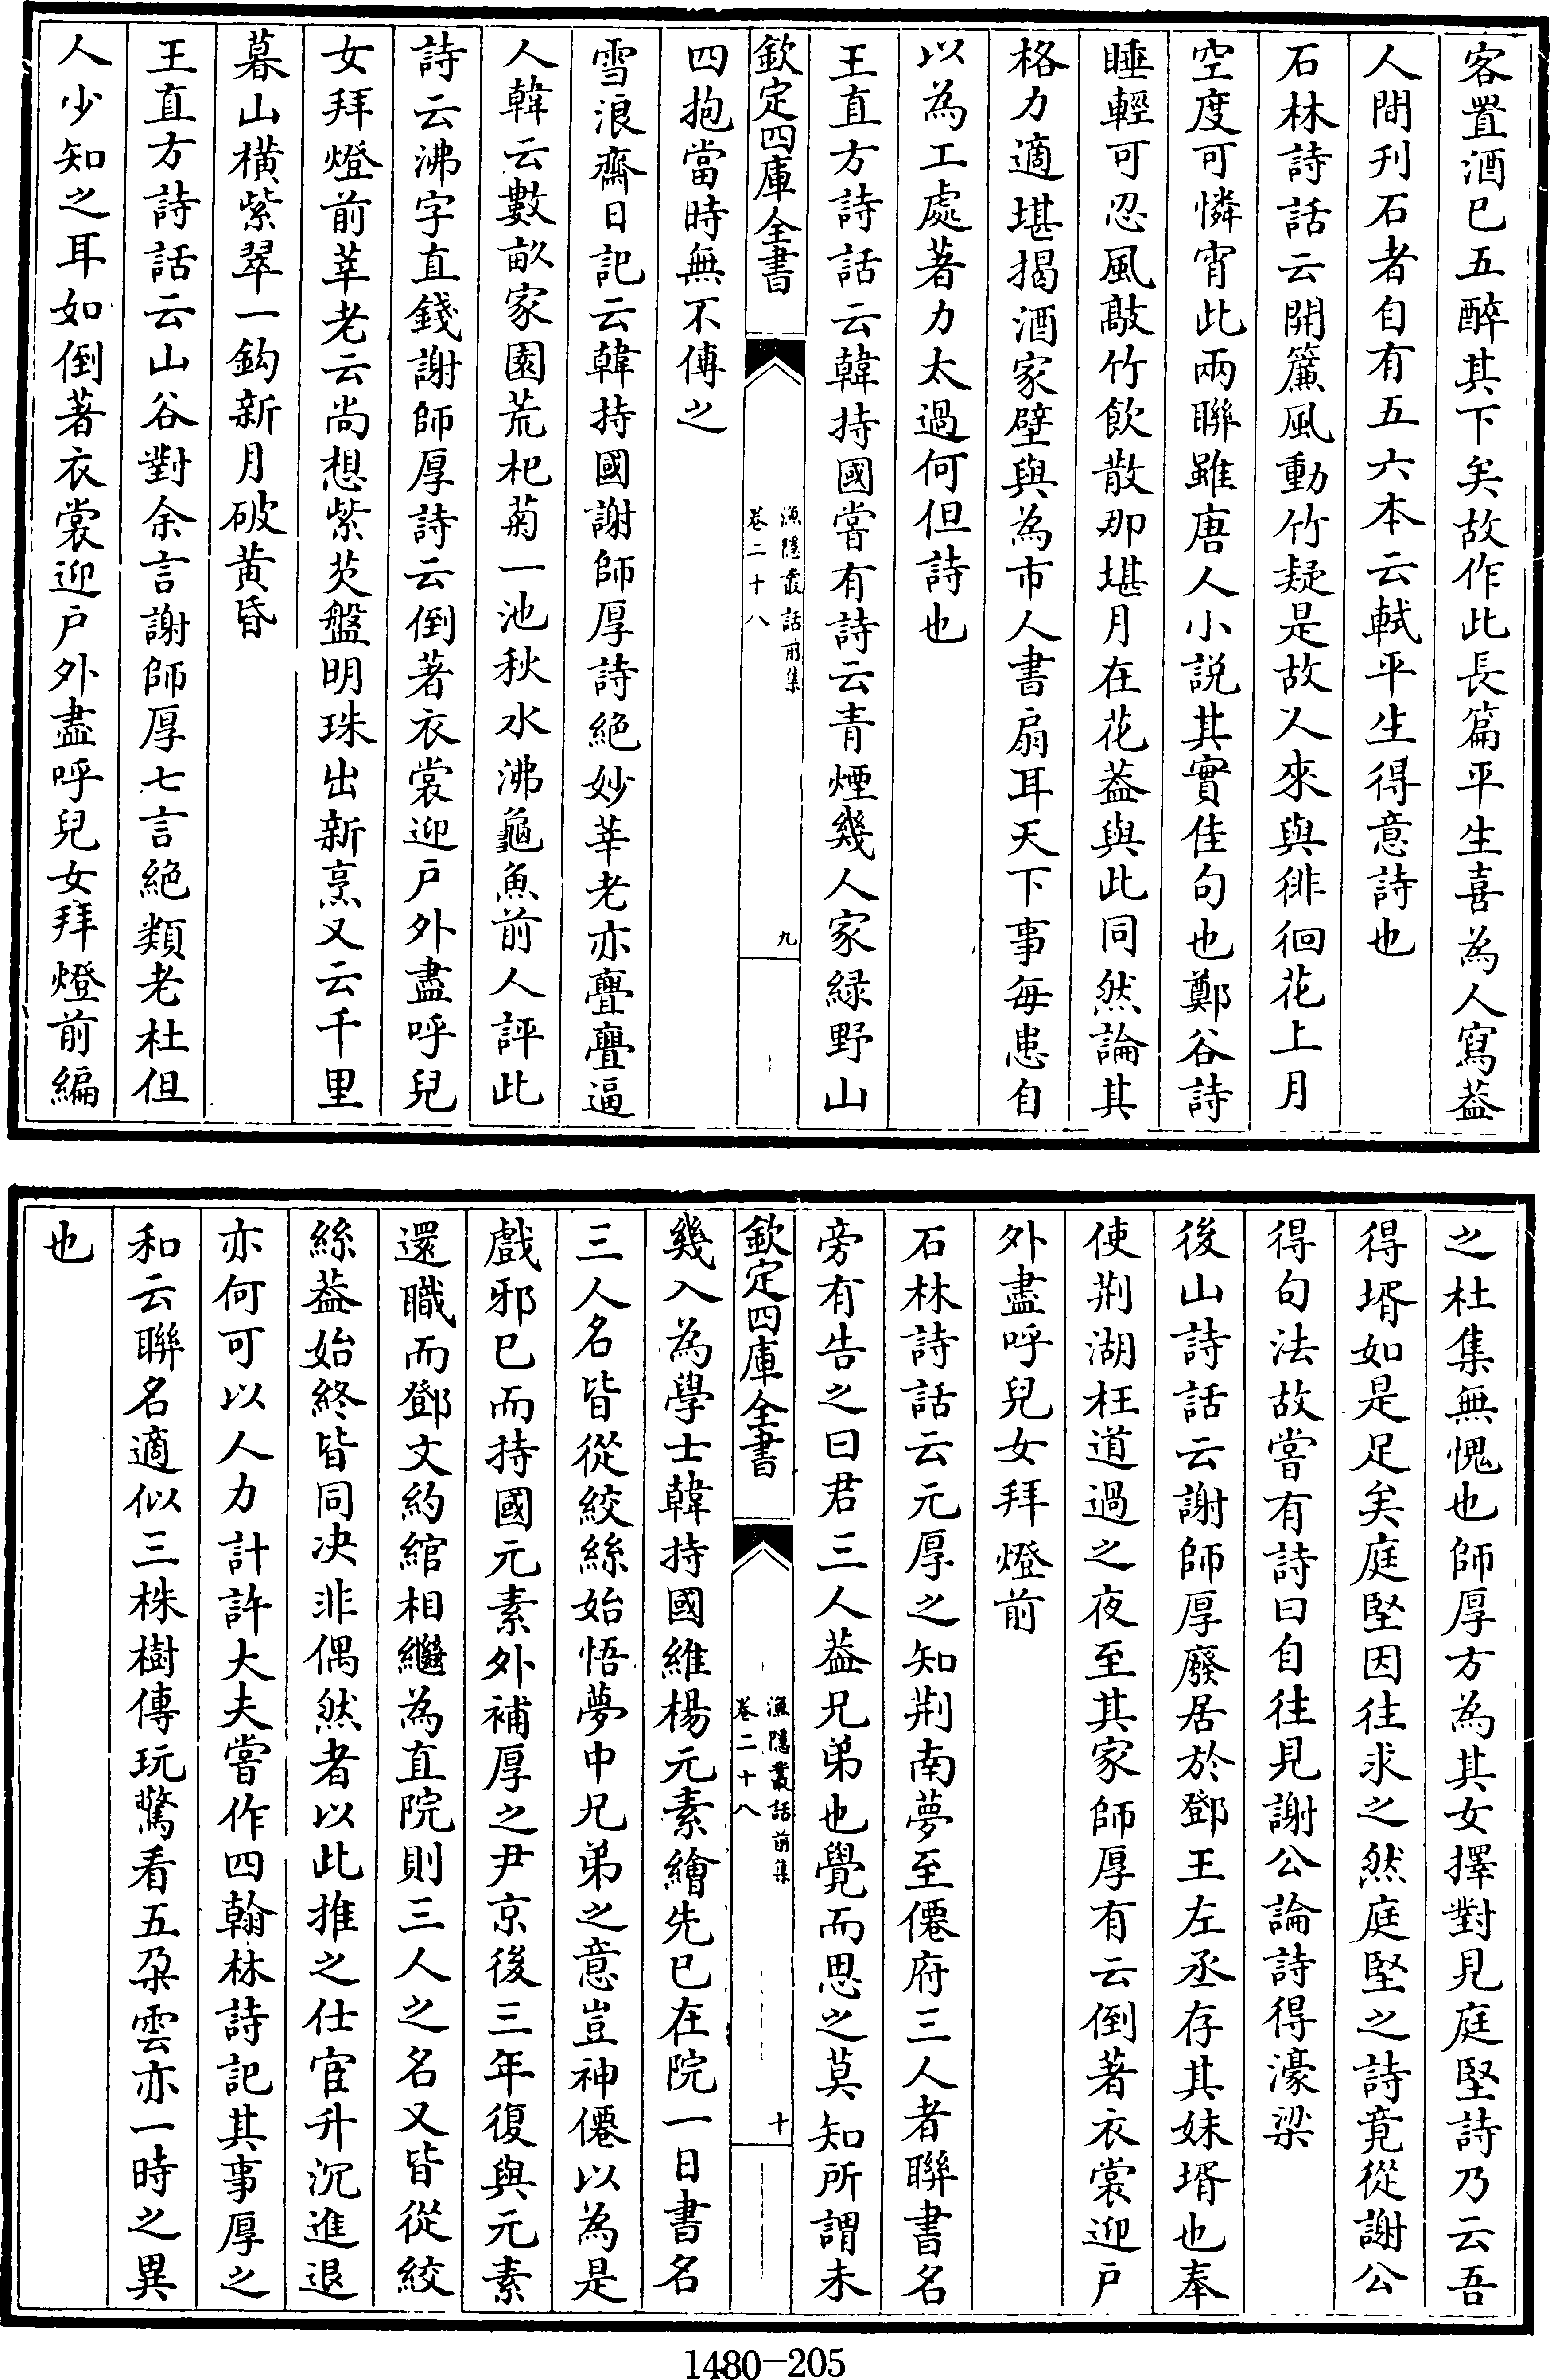 客置酒已五醉其下矣故作此長篇平生喜為人寫葢
人間刋石者自有五六本云軾平生得意詩也
石林詩話云開簾風動竹疑是故人來與徘徊花上月
空度可憐宵此兩聯雖唐人小説其實佳句也鄭谷詩
睡輕可忍風敲竹飲散那堪月在花葢與此同然論其
格力適堪揭酒家壁與為市人書扇耳天下事每患自
以為工處著力太過何但詩也
王直方詩話云韓持國嘗有詩云青煙幾人家緑野山
欽定四庫全書
漁隱叢話前集
卷二十八
九
四抱當時無不傳之
雪浪齋日記云韓持國謝師厚詩絶妙莘老亦亹亹逼
人韓云數畝家園荒杞菊一池秋水沸龜魚前人評此
詩云沸字直錢謝師厚詩云倒著衣裳迎户外盡呼兒
女拜燈前莘老云尚想紫芡盤明珠出新烹又云千里
暮山橫紫翠一鈎新月破黄昏
王直方詩話云山谷對余言謝師厚七言絶類老杜但
人少知之耳如倒著衣裳迎户外盡呼兒女拜燈前編
之杜集無愧也師厚方為其女擇對見庭堅詩乃云吾
得壻如是足矣庭堅因往求之然庭堅之詩竟從謝公
得句法故嘗有詩曰自往見謝公論詩得濠梁
後山詩話云謝師厚廢居於鄧王左丞存其妹壻也奉
使荆湖枉道過之夜至其家師厚有云倒著衣裳迎户
外盡呼兒女拜燈前
石林詩話云元厚之知荆南夢至僊府三人者聯書名
旁有告之曰君三人葢兄弟也覺而思之莫知所謂未
欽定四庫全書
漁隱叢話前集
卷二十八
十
幾入為學士韓持國維楊元素繪先已在院一日書名
三人名皆從絞絲始悟夢中兄弟之意豈神僊以為是
戲邪已而持國元素外補厚之尹京後三年復與元素
還職而鄧文約綰相繼為直院則三人之名又皆從絞
絲葢始終皆同决非偶然者以此推之仕宦升沉進退
亦何可以人力計許大夫嘗作四翰林詩記其事厚之
和云聯名適似三株樹傳玩驚看五朶雲亦一時之異
也
1480-205